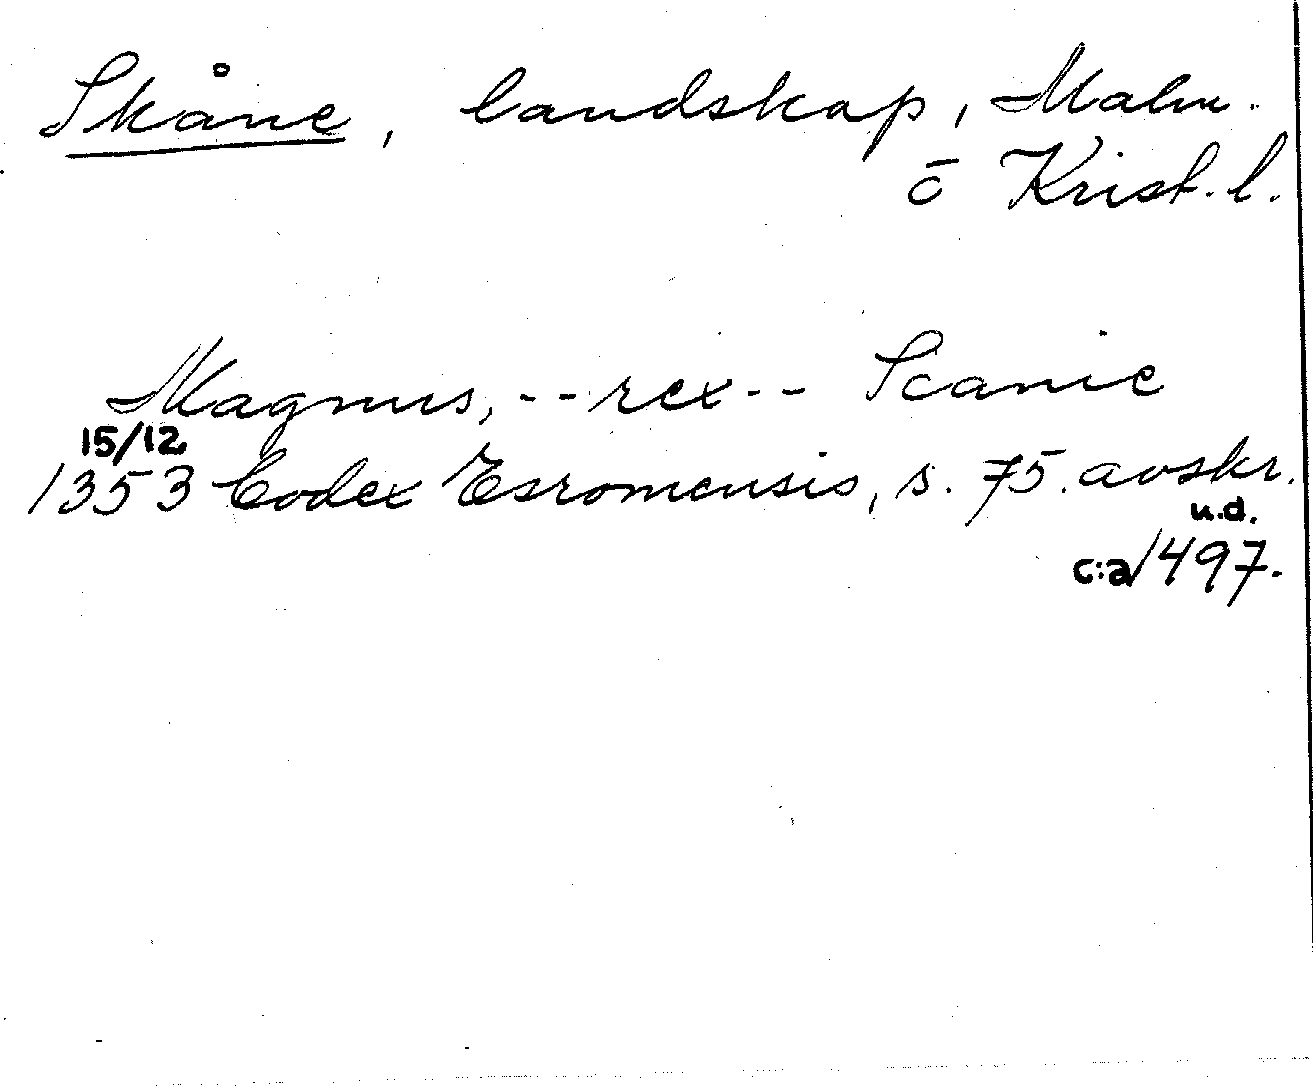 Skåne, landskap, Malm.
ō Krist. l.
Magnus, -- rex -- Scanie
15/12
1353 Codex Esromensis, s. 75. avskr.
u.d.
c:a 1497.